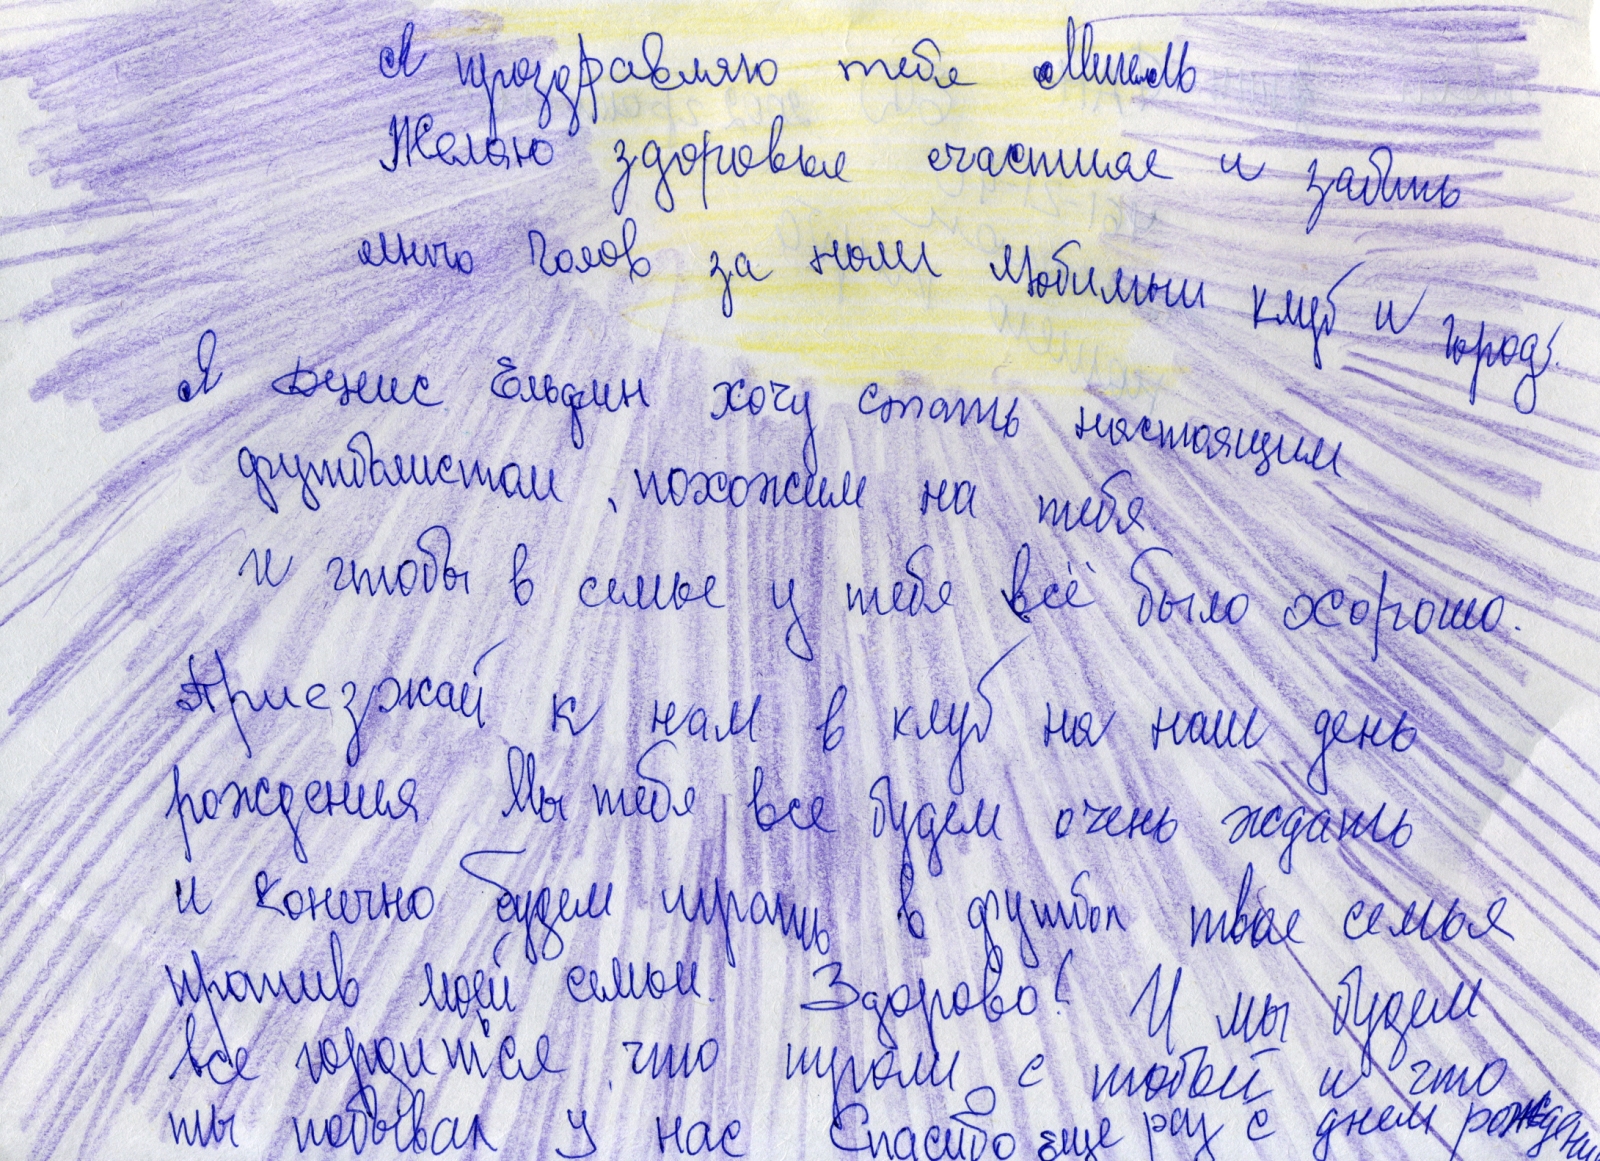 Я проздравляю тебя Мигель
Желаю здоровья счастия и забить
много голов за наш любимый клуб и город.
Я Денис Ельфин хочу стать настоящим
футболистом, похожим на тебя
и чтобы в семье у тебя всё было хорошо.
Приезжай к нам в клуб на наш день
рождения Мы тебя все будем очень ждать
и конечно будем играть в футбол твоя семья
против моей семьи. Здорово! И мы будем
все гордится, что играли с тобой и что
ты побывал у нас Спасибо еще раз с днем рождения